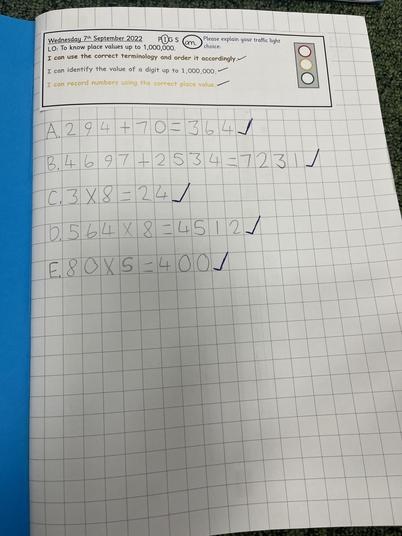 Wednesday 7th September 2022 P I G S Please explain your traffic light
LO: To know place values up to 1,000,000. choice:
I can use the correct terminology and order it accordingly.
I can identify the value of a digit up to 1,000,000.
I can record numbers using the correct place value.
A. 294 + 70 = 364 ✓
B. 4697 + 2534 = 7231 ✓
C. 3 X 8 = 24 ✓
D. 564 X 8 = 4512 ✓
E. 80 X 5 = 400 ✓